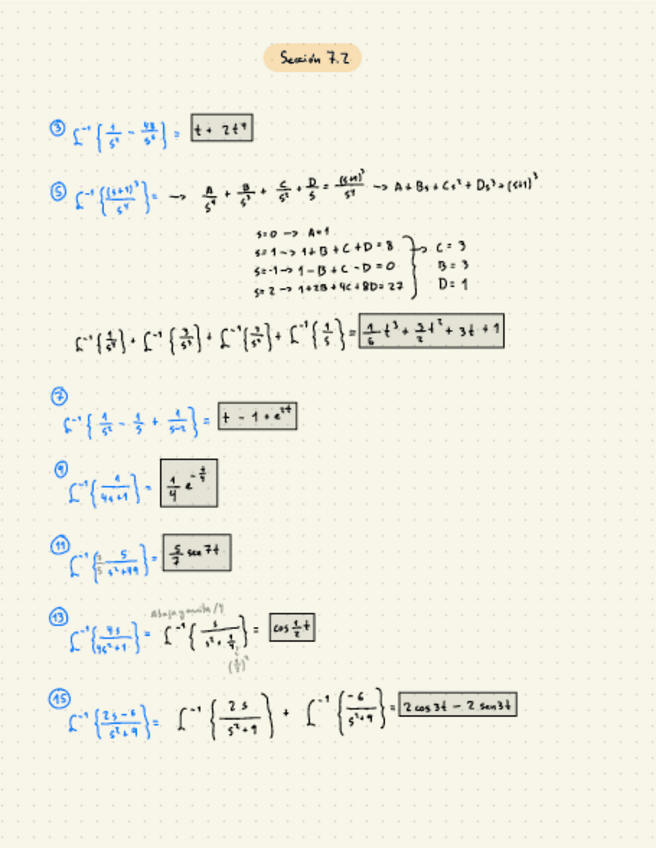 Sección 7.2
③ ℒ⁻¹{1/s² - 48/s⁵} = t + 2t⁴
⑤ ℒ⁻¹{(s+1)³/s⁴} = → A/s⁴ + B/s³ + C/s² + D/s = (s+1)³/s⁴ → A+Bs+Cs²+Ds³=(s+1)³
s=0 → A=1
s=1 → 1+B+C+D=8 → C=3
s=-1 → 1-B+C-D=0 B=3
s=2 → 1+2B+4C+8D=27 D=1
ℒ⁻¹{1/s⁴} + ℒ⁻¹{3/s³} + ℒ⁻¹{3/s²} + ℒ⁻¹{1/s} = 1/6 t³ + 3/2 t² + 3t + 1
⑦
ℒ⁻¹{1/s² - 1/s + 1/(s-2)} = t - 1 + e^(2t)
⑨
ℒ⁻¹{1/(4s+1)} = 1/4 e^(-t/4)
⑪
ℒ⁻¹{5/(s²+49)} = 5/7 sen 7t
⑬ Abajo y arriba /4
ℒ⁻¹{4s/(4s²+1)} = ℒ⁻¹{s/(s²+1/4)} = cos 1/2 t
(1/2)²
⑮
ℒ⁻¹{(2s-6)/(s²+9)} = ℒ⁻¹{2s/(s²+9)} + ℒ⁻¹{-6/(s²+9)} = 2 cos 3t - 2 sen 3t